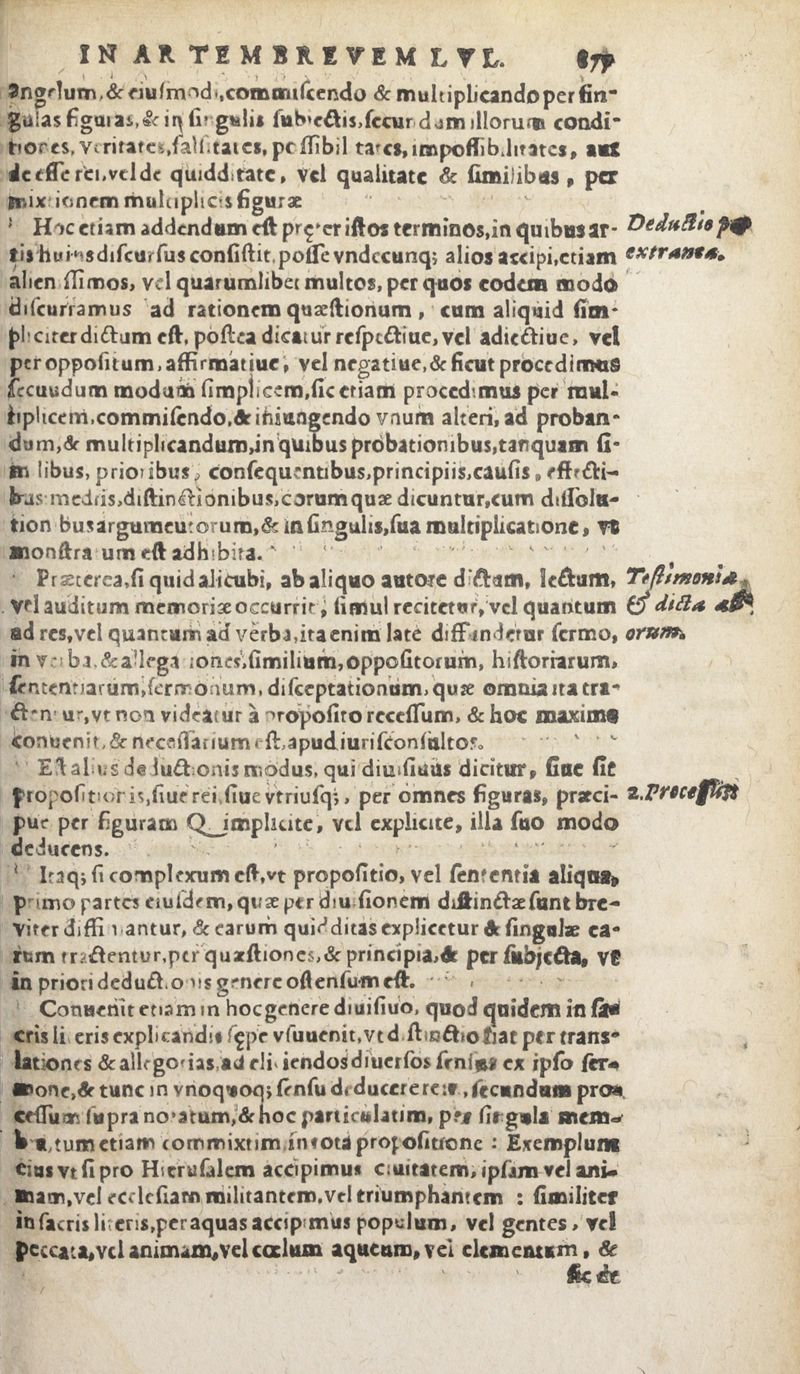 IN ARTEM BREVEM LVL. 877
Angelum, & eiuſmodi, commiſcendo & multiplicando per ſin-
gulas figuras, & in ſingulis ſubiectis, ſecundum illorum condi-
tiones, veritates, falſitates, poſſibilitates, impoſſibilitates, aut
de eſſe rei, vel de quidditate, vel qualitate & ſimilibus, per
mixtionem multiplicis figuræ
Hoc etiam addendum eſt pręter iſtos terminos, in quibus ar-
tis huiusdiſcurſus conſiſtit, poſſe vndecunq; alios accipi, etiam
alieniſſimos, vel quarumlibet multos, per quos eodem modo
diſcurramus ad rationem quæſtionum, cum aliquid ſim-
pliciter dictum eſt, poſtea dicatur reſpectiue, vel adiectiue, vel
per oppoſitum, affirmatiue, vel negatiue, & ſicut procedimus
ſecuudum modum ſimplicem, ſic etiam procedimus per mul-
tiplicem, commiſcendo, & iniungendo vnum alteri, ad proban-
dum, & multiplicandum, in quibus probationibus, tanquam ſi-
milibus, prioribus, conſequentibus, principiis, cauſis, effecti-
bus mediis, diſtinctionibus, corumquæ dicuntur, cum diſſolu-
tionibus argumeutorum, & in ſingulis, ſua multiplicatione, vt
monſtratum eſt adhibita.
Deductio per
extranea.
Præterea, ſi quid alicubi, ab aliquo autore dictam, lectum,
vel auditum memoriæ occurrit, ſimul recitetur, vel quantum
ad res, vel quantum ad verba, ita enim latè diffundetur ſermo,
in verba, & allegationes, ſimilium, oppoſitorum, hiſtoriarum,
ſententiarum, ſermonum, diſceptationum, quæ omnia ita tra-
ctentur, vt non videatur à propoſito receſſum, & hoc maximè
conuenit, & neceſſarium eſt, apud iuriſconſultos.
Teſtimonia,
& dicta
Et alius deductionis modus, qui diuiſiuus dicitur, ſiue ſit
propoſitioris, ſiue rei, ſiue vtriuſq;, per omnes figuras, præci-
pue per figuram Q implicite, vel explicite, illa ſuo modo
deducens.
2. Proceſſus
Itaq; ſi complexum eſt, vt propoſitio, vel ſententia aliqua,
primo partes eiuſdem, quæ per diuiſionem diſtinctæ ſunt bre-
viter diffiniantur, & earum quidditas explicetur & ſingulæ ea-
rum tractentur, per quæſtiones, & principia, & per ſubjecta, vt
in priori deductionis genere oſtenſum eſt.
Conuenit etiam in hoc genere diuiſiuo, quod quidem in ſa-
cris literis explicandis ſępe vſuuenit, vt diſtinctio fiat per trans-
lationes & allegorias, ad eliciendos diuerſos ſenſus ex ipſo ſer-
mone, & tunc in vnoquoq; ſenſu deducere, ſecundum pro-
ceſſum ſupra notatum, & hoc particulatim, per ſingula mem-
bra, tum etiam commixtim, in tota propoſitione : Exemplum
eius vt ſi pro Hieruſalem accipimus ciuitatem, ipſam vel ani-
mam, vel eccleſiam militantem, vel triumphantem : ſimiliter
in ſacris literis, per aquas accipimus populum, vel gentes, vel
peccata, vel animam, vel cœlum aqueum, vel elementum, &
ſic de